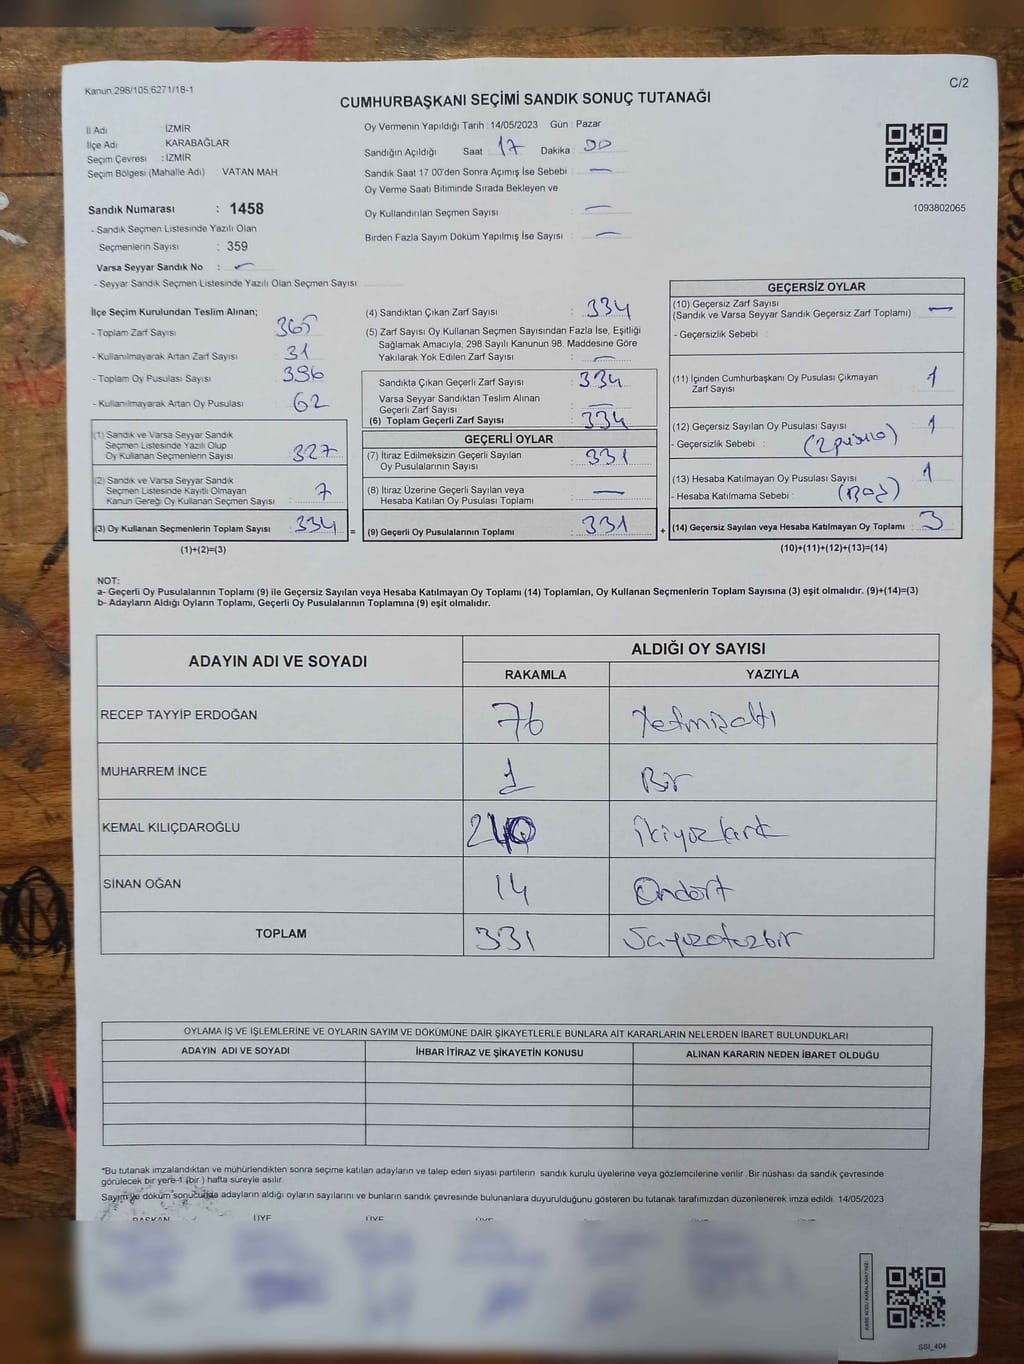 Kanun:298/105;6271/18-1
C/2
CUMHURBAŞKANI SEÇİMİ SANDIK SONUÇ TUTANAĞI
İl Adı İZMİR
İlçe Adı KARABAĞLAR
Seçim Çevresi : İZMİR
Seçim Bölgesi (Mahalle Adı) : VATAN MAH.
Sandık Numarası : 1458
- Sandık Seçmen Listesinde Yazılı Olan
Seçmenlerin Sayısı : 359
Varsa Seyyar Sandık No : —
- Seyyar Sandık Seçmen Listesinde Yazılı Olan Seçmen Sayısı
Oy Vermenin Yapıldığı Tarih : 14/05/2023 Gün : Pazar
Sandığın Açıldığı Saat : 17 Dakika : 00
Sandık Saat 17:00'den Sonra Açılmış İse Sebebi : —
Oy Verme Saati Bitiminde Sırada Bekleyen ve
Oy Kullandırılan Seçmen Sayısı : —
Birden Fazla Sayım Döküm Yapılmış İse Sayısı : —
1093802065
İlçe Seçim Kurulundan Teslim Alınan;
- Toplam Zarf Sayısı : 365
- Kullanılmayarak Artan Zarf Sayısı : 31
- Toplam Oy Pusulası Sayısı : 396
- Kullanılmayarak Artan Oy Pusulası : 62
(1) Sandık ve Varsa Seyyar Sandık
Seçmen Listesinde Yazılı Olup
Oy Kullanan Seçmenlerin Sayısı : 327
(2) Sandık ve Varsa Seyyar Sandık
Seçmen Listesinde Kayıtlı Olmayan
Kanun Gereği Oy Kullanan Seçmen Sayısı : 7
(3) Oy Kullanan Seçmenlerin Toplam Sayısı : 334 =
(1)+(2)=(3)
(4) Sandıktan Çıkan Zarf Sayısı : 334
(5) Zarf Sayısı Oy Kullanan Seçmen Sayısından Fazla İse, Eşitliği
Sağlamak Amacıyla, 298 Sayılı Kanunun 98. Maddesine Göre
Yakılarak Yok Edilen Zarf Sayısı : —
Sandıkta Çıkan Geçerli Zarf Sayısı : 334
Varsa Seyyar Sandıktan Teslim Alınan
Geçerli Zarf Sayısı : —
(6) Toplam Geçerli Zarf Sayısı : 334
GEÇERLİ OYLAR
(7) İtiraz Edilmeksizin Geçerli Sayılan
Oy Pusulalarının Sayısı : 331
(8) İtiraz Üzerine Geçerli Sayılan veya
Hesaba Katılan Oy Pusulası Toplamı : —
(9) Geçerli Oy Pusulalarının Toplamı : 331 +
GEÇERSİZ OYLAR
(10) Geçersiz Zarf Sayısı
(Sandık ve Varsa Seyyar Sandık Geçersiz Zarf Toplamı) : —
- Geçersizlik Sebebi :
(11) İçinden Cumhurbaşkanı Oy Pusulası Çıkmayan
Zarf Sayısı : 1
(12) Geçersiz Sayılan Oy Pusulası Sayısı : 1
- Geçersizlik Sebebi :
(13) Hesaba Katılmayan Oy Pusulası Sayısı : 1
- Hesaba Katılmama Sebebi :
(14) Geçersiz Sayılan veya Hesaba Katılmayan Oy Toplamı : 3
(10)+(11)+(12)+(13)=(14)
NOT:
a- Geçerli Oy Pusulalarının Toplamı (9) ile Geçersiz Sayılan veya Hesaba Katılmayan Oy Toplamı (14) Toplamları, Oy Kullanan Seçmenlerin Toplam Sayısına (3) eşit olmalıdır. (9)+(14)=(3)
b- Adayların Aldığı Oyların Toplamı, Geçerli Oy Pusulalarının Toplamına (9) eşit olmalıdır.
ADAYIN ADI VE SOYADI ALDIĞI OY SAYISI
RAKAMLA YAZIYLA
RECEP TAYYİP ERDOĞAN 76 Yetmişaltı
MUHARREM İNCE 1 Bir
KEMAL KILIÇDAROĞLU 240 ikiyüzkırk
SİNAN OĞAN 14 Ondört
TOPLAM 331
OYLAMA İŞ VE İŞLEMLERİNE VE OYLARIN SAYIM VE DÖKÜMÜNE DAİR ŞİKAYETLERLE BUNLARA AİT KARARLARIN NELERDEN İBARET BULUNDUKLARI
ADAYIN ADI VE SOYADI İHBAR İTİRAZ VE ŞİKAYETİN KONUSU ALINAN KARARIN NEDEN İBARET OLDUĞU
*Bu tutanak imzalandıktan ve mühürlendikten sonra seçime katılan adayların ve talep eden siyasi partilerin sandık kurulu üyelerine veya gözlemcilerine verilir. Bir nüshası da sandık çevresinde
görülecek bir yere 1 (bir ) hafta süreyle asılır.
Sayım ve döküm sonucunda adayların aldığı oyların sayılarını ve bunların sandık çevresinde bulunanlara duyurulduğunu gösteren bu tutanak tarafımızdan düzenlenerek imza edildi. 14/05/2023
BAŞKAN ÜYE ÜYE ÜYE
SSI_404